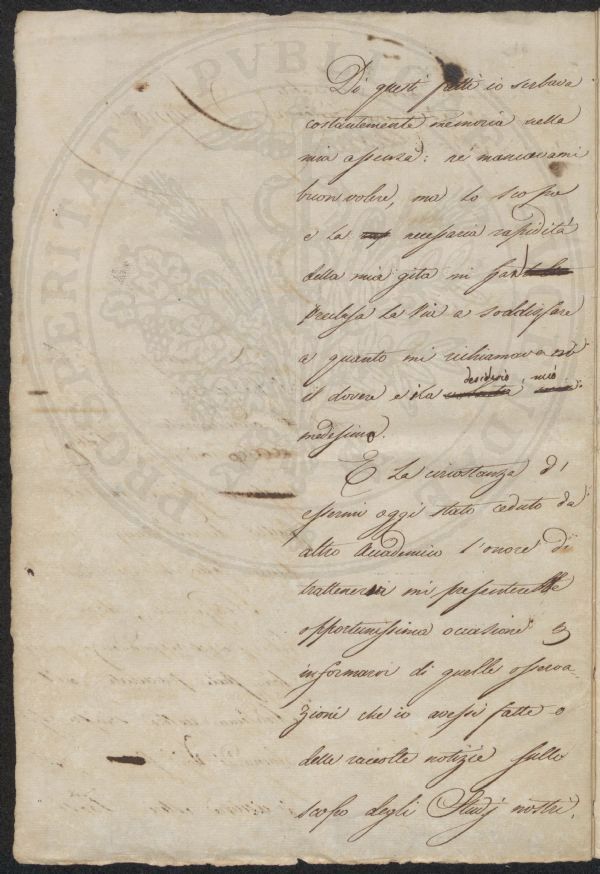 Di questi fatti io serbava
costantemente memoria nella
mia assenza: né mancavami
buon volere, ma lo scopo
e la necessaria rapidità
della mia gita mi
preclusa la via a soddisfare
a quanto mi richiamava
il dovere e il desiderio mio
medesimo.
E la circostanza d'
essermi oggi stato ceduto da
altro Accademico l'onore di
trattenervi mi presenterebbe
opportunissima occasione
informarvi di quelle osserva-
zioni che io avessi fatte o
delle raccolte notizie sullo
scopo degli Studj nostri.
PROSPERITATI PVBLICAE